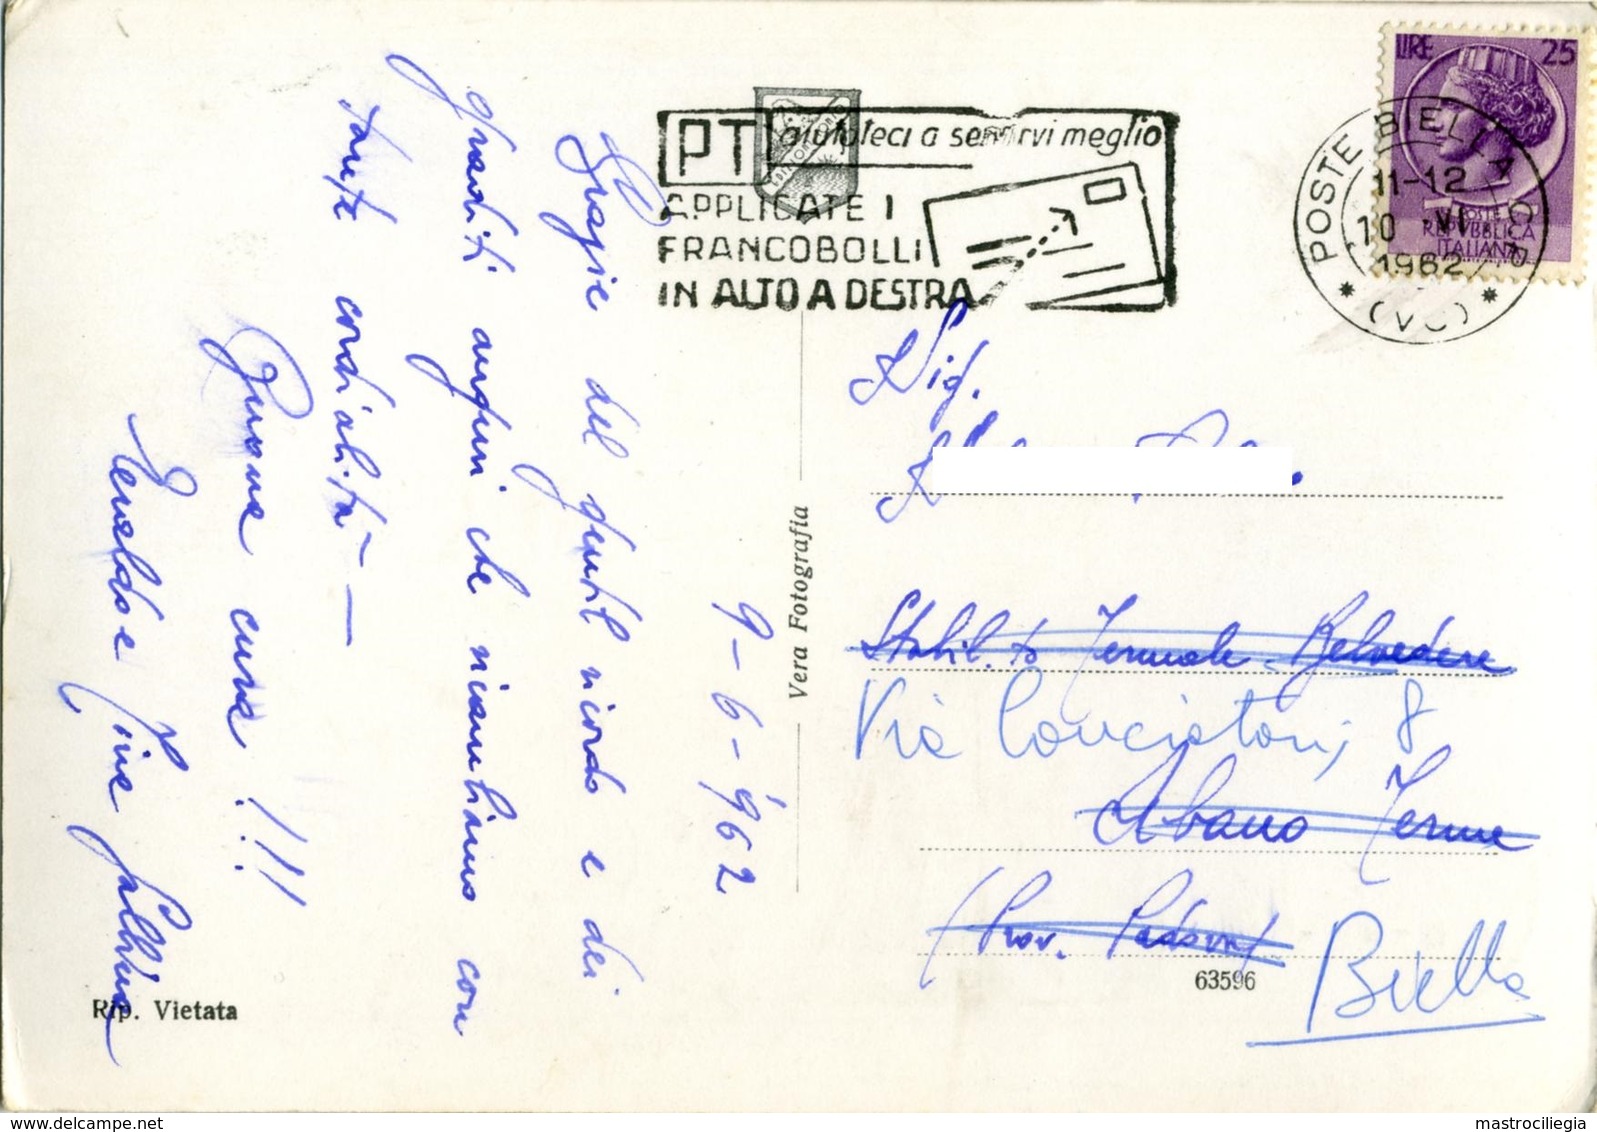 9-6-'962
Grazie del gentil ricordo e dei
graditi auguri che ricambiamo con
tante cordialità —
Buona cura!!!
e Pina
Rip. Vietata
Vera Fotografia
PT aiutateci a servirvi meglio
APPLICATE I
FRANCOBOLLI
IN ALTO A DESTRA
LIRE 25
POSTE
REPVBBLICA
ITALIANA
POSTE BIELLA C.P.
11-12
10 VI
1962
(VC)
Sig.
Stabil.to Termale Belvedere
Via 8
Abano Terme
(Prov. Padova)
63596
Biella
mastrociliegia